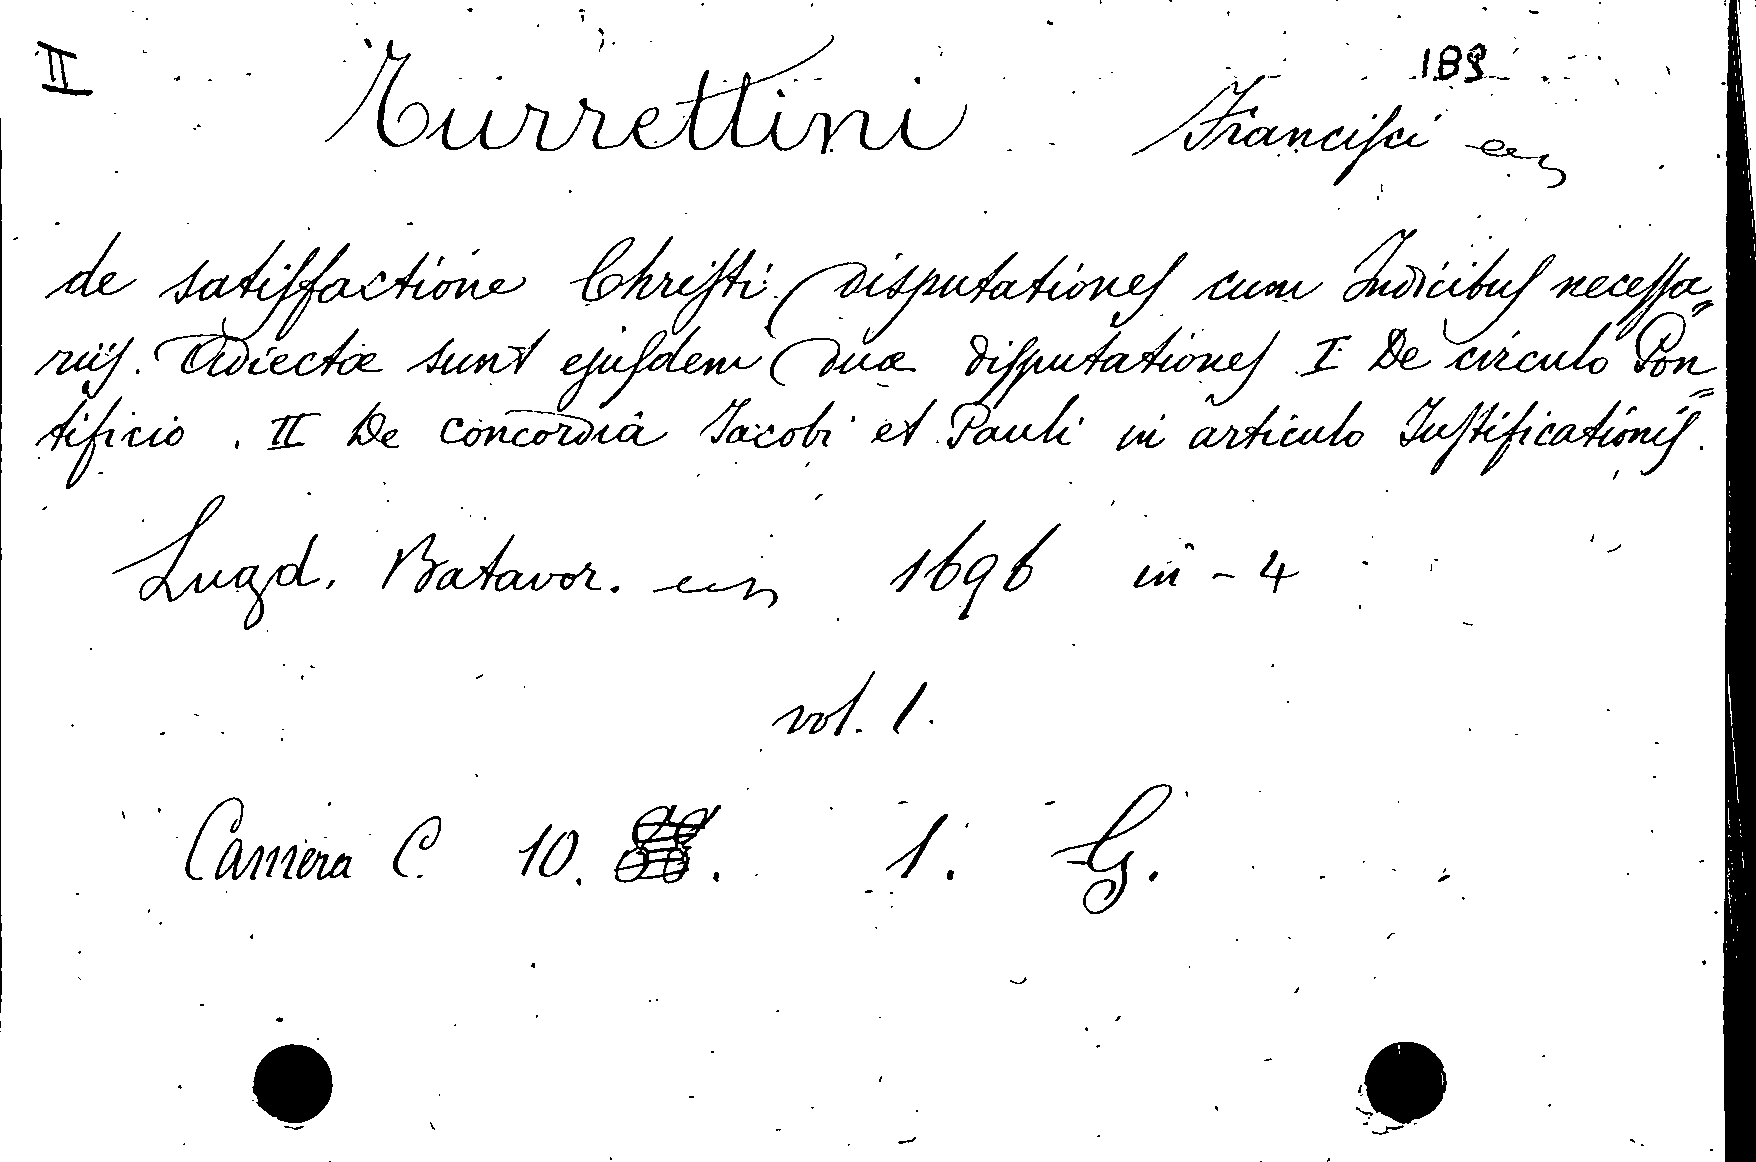 II
189
Turrettini Franciſci
de satiſfactione Chriſti disputationeſ cum Indicibuſ neceſſa„
riiſ. Adiectæ sunt ejuſdem duæ diſputationeſ I De circulo Pon=
tificio. II De concordiâ Jacobi et Pauli in articulo Juſtificationiſ.
Lugd. Batavor. 1696 in-4
vol. 1.
Camera C. 10. 1. G.